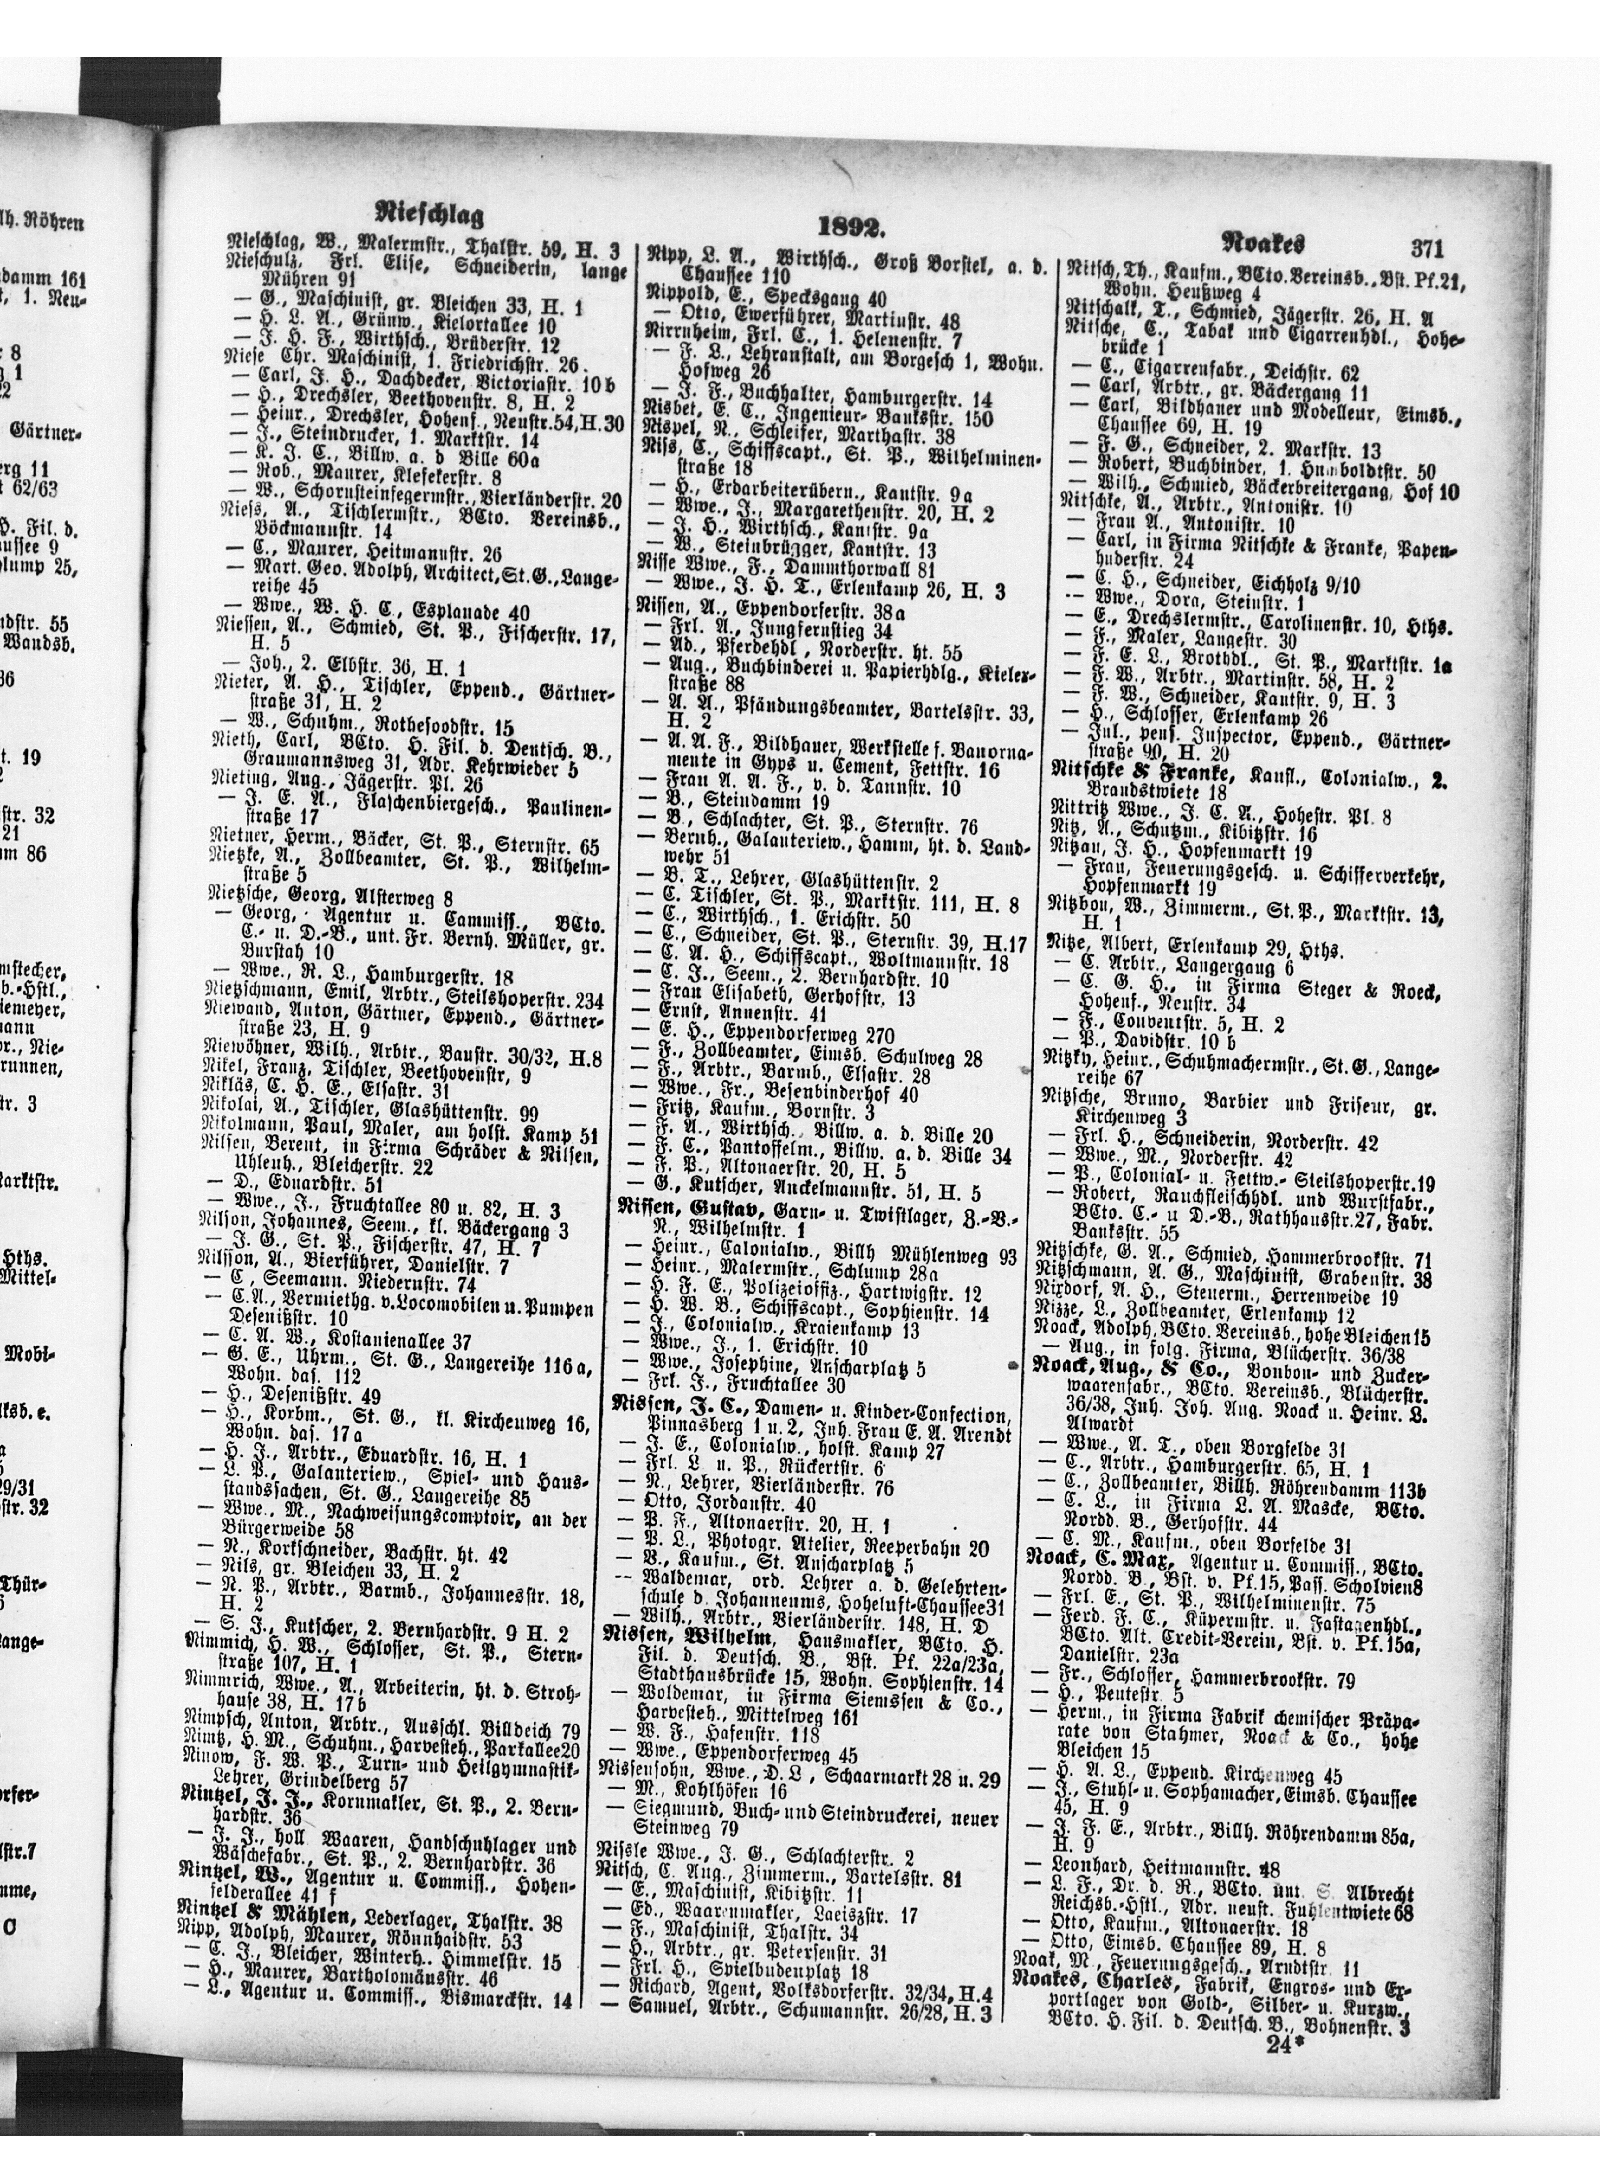 Nieschlag
1892.
Noakes
371
Nieschlag, W., Malermstr., Thalstr. 59, H. 3
Nieschulz, Frl. Elise, Schneiderin, lange
Mühren 91
— G., Maschinist, gr. Bleichen 33, H. 1
— H. L. A., Grünw., Kielortallee 10
— J. H. F., Wirthsch., Brüderstr. 12
Niese Chr. Maschinist, 1. Friedrichstr. 26.
— Carl, J. H., Dachdecker, Victoriastr. 10 b
— H., Drechsler, Beethovenstr. 8, H. 2
— Heinr., Drechsler, Hohenf., Neustr. 54, H. 30
— J., Steindrucker, 1. Marktstr. 14
— K. J. C., Billw. a. d Bille 60a
— Rob., Maurer, Klefekerstr. 8
— W., Schornsteinfegermstr., Vierländerstr. 20
Niess, A., Tischlermstr., BCto. Vereinsb.,
Böckmannstr. 14
— C., Maurer, Heitmannstr. 26
— Mart. Geo. Adolph, Architect, St. G., Lange-
reihe 45
— Wwe., W. H. C., Esplanade 40
Niessen, A., Schmied, St. P., Fischerstr. 17,
H. 5
— Joh., 2. Elbstr. 36, H. 1
Nieter, A. H., Tischler, Eppend., Gärtner-
straße 31, H. 2
— W., Schuhm., Rothesoodstr. 15
Nieth, Carl, BCto. H. Fil. d. Deutsch. B.,
Graumannsweg 31, Adr. Kehrwieder 5
Nieting, Aug., Jägerstr. Pl. 26
— J. E. A., Flaschenbiergesch., Paulinen-
straße 17
Nietner, Herm., Bäcker, St. P., Sternstr. 65
Nietzke, A., Zollbeamter, St. P., Wilhelm-
straße 5
Nietzsche, Georg, Alsterweg 8
— Georg, Agentur u. Commiss., BCto.
C.- u. D.-B., unt. Fr. Bernh. Müller, gr.
Burstah 10
— Wwe., R. L., Hamburgerstr. 18
Nietzschmann, Emil, Arbtr., Steilshoperstr. 234
Niewand, Anton, Gärtner, Eppend., Gärtner-
straße 23, H. 9
Niewöhner, Wilh., Arbtr., Baustr. 30/32, H. 8
Nikel, Franz, Tischler, Beethovenstr, 9
Nikläs, C. H. E., Elsastr. 31
Nikolai, A., Tischler, Glashüttenstr. 99
Nikolmann, Paul, Maler, am holst. Kamp 51
Nilsen, Berent, in Firma Schräder & Nilsen,
Uhlenh., Bleicherstr. 22
— D., Eduardstr. 51
— Wwe., J., Fruchtallee 80 u. 82, H. 3
Nilson, Johannes, Seem., kl. Bäckergang 3
— J. G., St. P., Fischerstr. 47, H. 7
Nilsson, A., Bierführer, Danielstr. 7
— C, Seemann. Niedernstr. 74
— C. A., Vermiethg. v. Locomobilen u. Pumpen
Desenißstr. 10
— C. A. W., Kostanienallee 37
— G. E., Uhrm., St. G., Langereihe 116 a,
Wohn. das. 112
— H., Desenißstr. 49
— H., Korbm., St. G., kl. Kirchenweg 16,
Wohn. das. 17 a
— H. J., Arbtr., Eduardstr. 16, H. 1
— L. P., Galanteriew., Spiel- und Haus-
standssachen, St. G., Langereihe 85
— Wwe. M., Nachweisungscomptoir, an der
Bürgerweide 58
— N., Korkschneider, Bachstr. ht. 42
— Nils, gr. Bleichen 33, H. 2
— N. P., Arbtr., Barmb., Johannesstr. 18,
H. 2
— S. J., Kutscher, 2. Bernhardstr. 9 H. 2
Nimmich, H. W., Schlosser, St. P., Stern-
straße 107, H. 1
Nimmrich, Wwe., A., Arbeiterin, ht. d. Stroh-
hause 38, H. 17 b
Nimpsch, Anton, Arbtr., Ausschl. Billdeich 79
Nimtz, H. M., Schuhm., Harvesteh., Parkallee 20
Ninow, F. W. P., Turn- und Heilgymnastik-
Lehrer, Grindelberg 57
Nintzel, J. J., Kornmakler, St. P., 2. Bern-
hardstr. 36
— J. J., holl Waaren, Handschuhlager und
Wäschefabr., St. P., 2. Bernhardstr. 36
Nintzel, W., Agentur u. Commiss., Hohen-
felderallee 41 f
Nintzel & Mählen, Lederlager, Thalstr. 38
Nipp, Adolph, Maurer, Rönnhaidstr. 53
— C. J., Bleicher, Winterh.. Himmelstr. 15
— H., Maurer, Bartholomäusstr. 46
— L., Agentur u. Commiss., Bismarckstr. 14
Nipp, L. A., Wirthsch., Groß Borstel, a. d.
Chaussee 110
Nippold, E., Specksgang 40
— Otto, Ewerführer, Martinstr. 48
Nirrnheim, Frl. C., 1. Helenenstr. 7
— F. L., Lehranstalt, am Borgesch 1, Wohn.
Hofweg 26
— J. F., Buchhalter, Hamburgerstr. 14
Nisbet, E. C., Ingenieur- Banksstr. 150
Nispel, N., Schleifer, Marthastr. 38
Niss, C., Schiffscapt., St. P., Wilhelminen-
straße 18
— H., Erdarbeiterübern., Kantstr. 9 a
— Wwe., J., Margarethenstr. 20, H. 2
— J. H., Wirthsch., Kantstr. 9a
— W., Steinbrügger, Kantstr. 13
Nisse Wwe., F., Dammthorwall 81
— Wwe., J. H. T., Erlenkamp 26, H. 3
Nissen, A., Eppendorferstr. 38 a
— Frl. A., Jungfernstieg 34
— Ad., Pferdehdl, Norderstr. ht. 55
— Aug., Buchbinderei u. Papierhdlg., Kieler-
straße 88
— A. A., Pfändungsbeamter, Bartelsstr. 33,
H. 2
— A. A. F., Bildhauer, Werkstelle f. Bauorna-
mente in Gyps u. Cement, Fettstr. 16
— Frau A. A. F., v. d. Tannstr. 10
— B., Steindamm 19
— B., Schlachter, St. P., Sternstr. 76
— Bernh., Galanteriew., Hamm, ht. d. Land-
wehr 51
— B. T., Lehrer, Glashüttenstr. 2
— C. Tischler, St. P., Marktstr. 111, H. 8
— C., Wirthsch., 1. Erichstr. 50
— C., Schneider, St. P., Sternstr. 39, H. 17
— C. A. H., Schiffscapt., Woltmannstr. 18
— C. J., Seem., 2. Bernhardstr. 10
— Frau Elisabeth, Gerhofstr. 13
— Ernst, Annenstr. 41
— E. H., Eppendorferweg 270
— F., Zollbeamter, Eimsb. Schulweg 28
— F., Arbtr., Barmb., Elsastr. 28
— Wwe., Fr., Besenbinderhof 40
— Fritz, Kaufm., Bornstr. 3
— F. A., Wirthsch., Billw. a. d. Bille 20
— F. C., Pantoffelm., Billw. a. d. Bille 34
— F. P., Altonaerstr. 20, H. 5
— G., Kutscher, Anckelmannstr. 51, H. 5
Nissen, Gustav, Garn- u. Twistlager, Z.-V.-
N., Wilhelmstr. 1
— Heinr., Colonialw., Billh Mühlenweg 93
— Heinr., Malermstr., Schlump 28a
— H. F. E., Polizeioffiz., Hartwigstr. 12
— H. W. B., Schiffscapt., Sophienstr. 14
— J., Colonialw., Kraienkamp 13
— Wwe., J., 1. Erichstr. 10
— Wwe., Josephine, Anscharplatz 5
— Frl. J., Fruchtallee 30
Nissen, J. C., Damen- u. Kinder-Confection,
Pinnasberg 1 u. 2, Inh. Frau E. A. Arendt
— J. E., Colonialw., holst. Kamp 27
— Frl. L u. P., Rückertstr. 6
— N., Lehrer, Vierländerstr. 76
— Otto, Jordanstr. 40
— P. F., Altonaerstr. 20, H. 1
— P. L., Photogr. Atelier, Reeperbahn 20
— V., Kaufm., St. Anscharplatz 5
— Waldemar, ord. Lehrer a. d. Gelehrten-
schule d. Johanneums, Hoheluft-Chaussee 31
— Wilh., Arbtr., Vierländerstr. 148, H. D
Nissen, Wilhelm, Hausmakler, BCto. H.
Fil. d. Deutsch. B., Bst. Pf. 22a/23a,
Stadthausbrücke 15, Wohn. Sophienstr. 14
— Woldemar, in Firma Siemssen & Co.,
Harvesteh., Mittelweg 161
— W. F., Hafenstr. 118
— Wwe., Eppendorferweg 45
Nissensohn, Wwe., D. L, Schaarmarkt 28 u. 29
— M., Kohlhöfen 16
— Siegmund, Buch- und Steindruckerei, neuer
Steinweg 79
Nissle Wwe., J. G., Schlachterstr. 2
Nitsch, C. Aug., Zimmerm., Bartelsstr. 81
— E., Maschinist, Kibitzstr. 11
— Ed., Waarenmakler, Laeiszstr. 17
— F., Maschinist, Thalstr. 34
— H., Arbtr., gr. Petersenstr. 31
— Frl. H., Spielbudenplatz 18
— Richard, Agent, Volksdorferstr. 32/34, H. 4
— Samuel, Arbtr., Schumannstr. 26/28, H. 3
Nitsch, Th., Kaufm., BCto. Vereinsb., Bst. Pf. 21,
Wohn. Heußweg 4
Nitschalk, T., Schmied, Jägerstr. 26, H. A
Nitsche, C., Tabak und Cigarrenhdl., Hohe-
brücke 1
— C., Cigarrenfabr., Deichstr. 62
— Carl, Arbtr., gr. Bäckergang 11
— Carl, Bildhauer und Modelleur, Eimsb.,
Chaussee 69, H. 19
— F. G., Schneider, 2. Markstr. 13
— Robert, Buchbinder, 1. Humboldtstr. 50
— Wilh., Schmied, Bäckerbreitergang, Hof 10
Nitschke, A., Arbtr., Antonistr. 10
— Frau A., Antonistr. 10
— Carl, in Firma Nitschke & Franke, Papen-
huderstr. 24
— C. H., Schneider, Eichholz 9/10
— Wwe., Dora, Steinstr. 1
— E., Drechslermstr., Carolinenstr. 10, Hths.
— F., Maler, Langestr. 30
— F. E. L., Brothdl., St. P., Marktstr. 1a
— F. W., Arbtr., Martinstr. 58, H. 2
— F. W., Schneider, Kantstr. 9, H. 3
— H., Schlosser, Erlenkamp 26
— Jul., pens. Inspector, Eppend., Gärtner-
straße 90, H. 20
Nitschke & Franke, Kaufl., Colonialw., 2.
Brandstwiete 18
Nittritz Wwe., J. C. A., Hohestr. Pl. 8
Nitz, A., Schutzm., Kibitzstr. 16
Nitzau, J. H., Hopfenmarkt 19
— Frau, Feuerungsgesch. u. Schifferverkehr,
Hopfenmarkt 19
Nitzbon, W., Zimmerm., St. P., Marktstr. 13,
H. 1
Nitze, Albert, Erlenkamp 29, Hths.
— C. Arbtr., Langergang 6
— C. G. H., in Firma Steger & Roeck,
Hohenf., Neustr. 34
— F., Conventstr. 5, H. 2
— P., Davidstr. 10 b
Nitzky, Heinr., Schuhmachermstr., St. G., Lange-
reihe 67
Nitzsche, Bruno, Barbier und Friseur, gr.
Kirchenweg 3
— Frl. H., Schneiderin, Norderstr. 42
— Wwe., M., Norderstr. 42
— P., Colonial- u. Fettw.- Steilshoperstr. 19
— Robert, Rauchfleischhdl. und Wurstfabr.,
BCto. C.- u D.-B., Rathhausstr. 27, Fabr.
Banksstr. 55
Nitzschke, G. A., Schmied, Hammerbrookstr. 71
Nitzschmann, A. G., Maschinist, Grabenstr. 38
Nixdorf, A. H., Steuerm., Herrenweide 19
Nizze, L., Zollbeamter, Erlenkamp 12
Noack, Adolph, BCto. Vereinsb., hohe Bleichen 15
— Aug., in folg. Firma, Blücherstr. 36/38
Noack, Aug., & Co., Bonbon- und Zucker-
waarenfabr., BCto. Vereinsb., Blücherstr.
36/38, Inh. Joh. Aug. Noack u. Heinr. L.
Alwardt
— Wwe., A. T., oben Borgfelde 31
— C., Arbtr., Hamburgerstr. 65, H. 1
— C., Zollbeamter, Billh. Röhrendamm 113b
— C. L., in Firma L. A. Mascke, BCto.
Nordd. B., Gerhofstr. 44
— C. M., Kaufm., oben Borfelde 31
Noack, C. Max, Agentur u. Commiss., BCto.
Nordd. B., Bst. v. Pf. 15, Pass. Scholvien 8
— Frl. E., St. P., Wilhelminenstr. 75
— Ferd. F. C., Küpermstr. u. Fastagenhdl.,
BCto. Alt. Credit-Verein, Bst. v. Pf. 15a,
Danielstr. 23a
— Fr., Schlosser, Hammerbrookstr. 79
— H., Peutestr 5
— Herm., in Firma Fabrik chemischer Präpa-
rate von Stahmer, Noack & Co., hohe
Bleichen 15
— H. A. L., Eppend. Kirchenweg 45
— J., Stuhl- u. Sophamacher, Eimsb. Chaussee
45, H. 9
— J. F. E., Arbtr., Billh. Röhrendamm 85a,
H. 9
— Leonhard, Heitmannstr. 48
— L. F., Dr. d. R., BCto. unt. S. Albrecht
Reichsb.-Hstl., Adr. neust. Fuhlentwiete 68
— Otto, Kaufm., Altonaerstr. 18
— Otto, Eimsb. Chaussee 89, H. 8
Noak, M., Feuerungsgesch., Arndtstr. 11
Noakes, Charles, Fabrik, Engros- und Ex-
portlager von Gold-, Silber- u. Kurzw.,
BCto. H. Fil. d. Deutsch. B., Bohnenstr. 3
24*